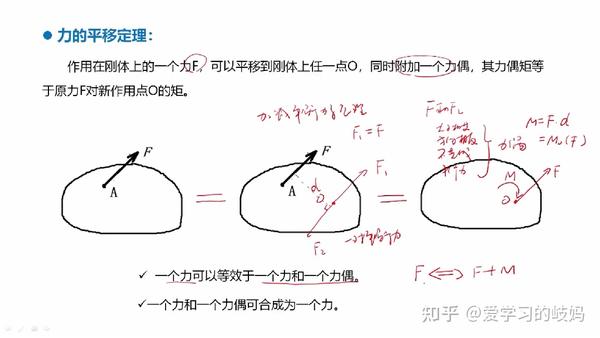 力的平移定理：
作用在刚体上的一个力F，可以平移到刚体上任一点O，同时附加一个力偶，其力偶矩等
于原力F对新作用点O的矩。
加减平衡力系原理
F₁=F
F和F₂
大小相等
方向相反
不共线
平行力
力偶
M=F·d
=M₀(F)
F
A
=
F
A
d
O
F₁
F₂
一对平衡力
=
M
O
F
✓ 一个力可以等效于一个力和一个力偶。
F ⟺ F+M
✓ 一个力和一个力偶可合成为一个力。
知乎 @爱学习的岐妈